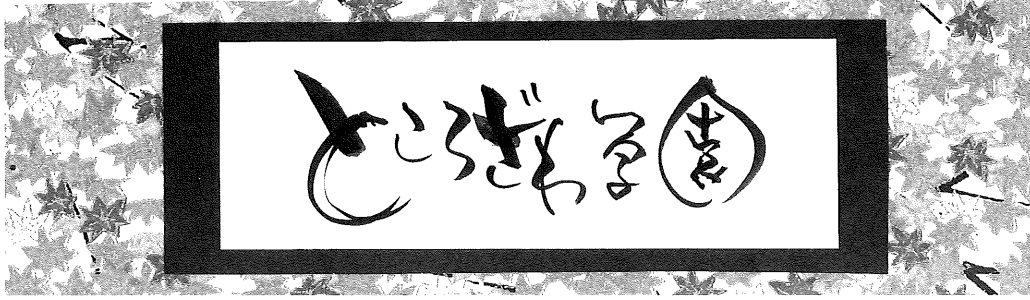 ところざわ学園